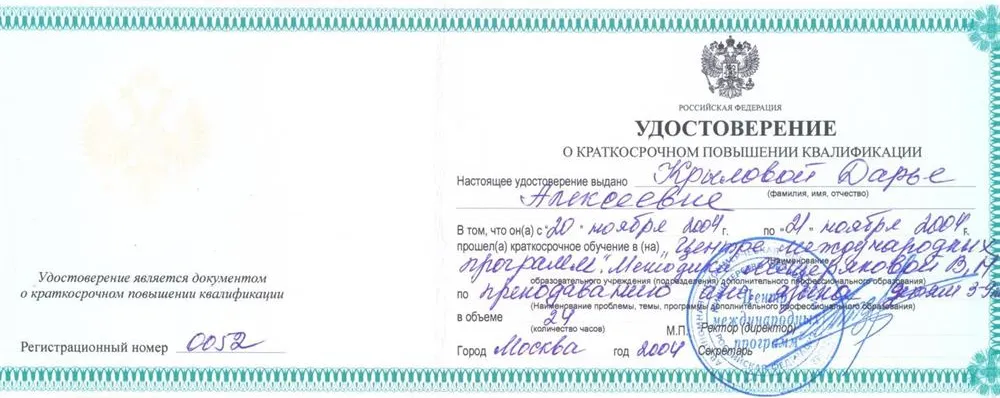 Удостоверение является документом
о краткосрочном повышении квалификации
Регистрационный номер 0052
РОССИЙСКАЯ ФЕДЕРАЦИЯ
УДОСТОВЕРЕНИЕ
О КРАТКОСРОЧНОМ ПОВЫШЕНИИ КВАЛИФИКАЦИИ
Настоящее удостоверение выдано Крыловой Дарье
(фамилия, имя, отчество)
Алексеевне
В том, что он(а) с "20" ноября 2004 г. по "21" ноября 2004 г.
прошел(а) краткосрочное обучение в (на) „Центре международных
(Наименование
программ". Методика Мещеряковой В.Н.
образовательного учреждения (подразделения) дополнительного профессионального образования)
по преподаванию англ. языка детям
(Наименование проблемы, темы, программы дополнительного профессионального образования)
в объеме 24
(количество часов)
М.П. Ректор (директор)
Город Москва год 2004 Секретарь
Центр
международных
программ